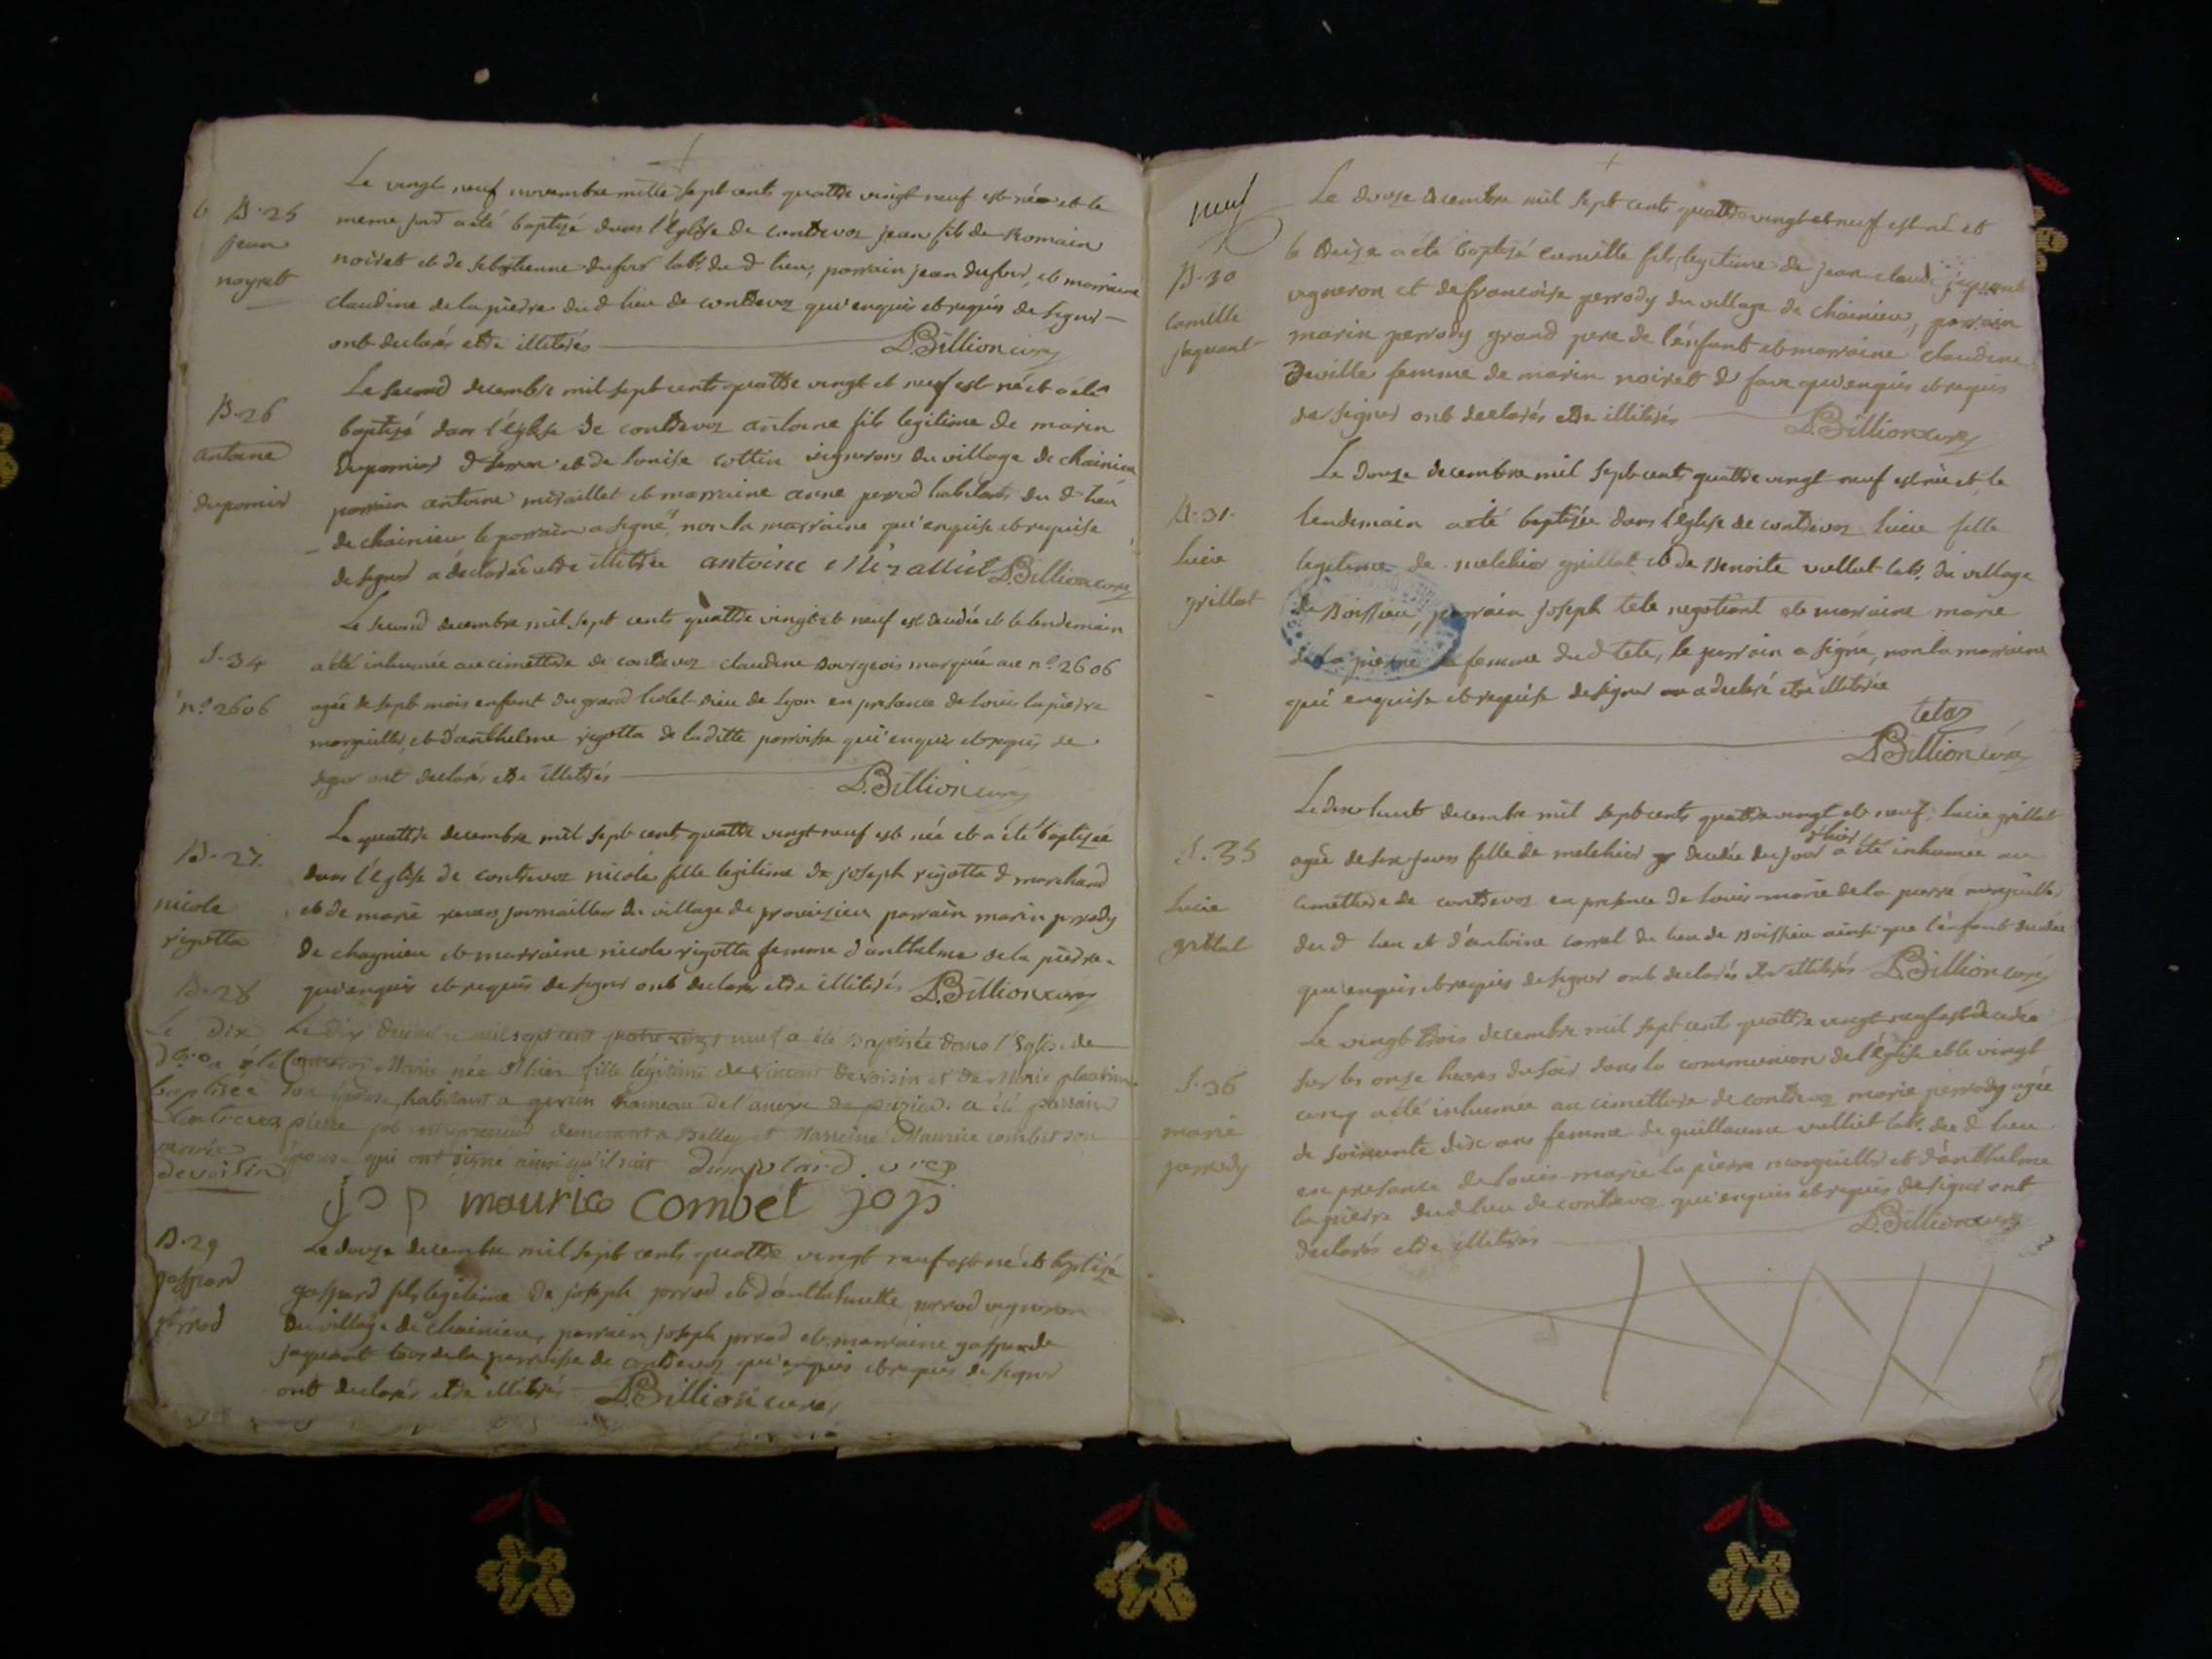 B. 25
jean
noyrett
Le vingt neuf novembre mille sept cents quattre vingt neuf est née et le
meme jour a été baptizé dans l'église de contrevoz jean fils de Romain
noiret et de sebastienne dufour lab.r du d lieu, parrain jean dufour, et marraine
claudine de la pierre du d lieu de contrevoz qui enquis et requis de signer
ont declarés etre illiterés D. Billion curé
B. 26
antoine
dupornier
Le second decembre mil sept cents quattre vingt et neuf est né et a été
baptizé dans l'église de contrevoz antoine fils legitime de marin
et de louise cottin vignerons du village de chainieu
parrain antoine miraillet et marraine anne perrod habitants du d lieu
de chainieu le parrain a signé, non la marraine qui enquise et requise
de signer a declarée etre illitrée antoine D. Billion curé
S. 34
n.o 2606
Le second decembre mil sept cents quattre vingt et neuf est decedée et le lendemain
a été inhumée au cimettiere de contrevoz claudine Bourgeois marquée au n.o 2606
agée de sept mois enfant du grand hotel-dieu de Lyon en presance de louis lapierre
marguillier, et d'anthelme rigotta de laditte parroisse qui enquis et requis de
signer ont declarés etre illiterés D. Billion curé
B. 27.
nicole
rigotta
Le quattre decembre mil sept cents quattre vingt neuf est née et a été baptizée
dans l'église de contrevoz nicole fille legitime de joseph rigotta d marchand
et de marie du village de parrain marin perrody
de chagnieu et marraine nicole rigotta femme d'anthelme de la pierre
qui enquis et requis de signer ont declarés etre illiterés D. Billion curé
B. 28
Le Dix
a été
baptisée
Contrevoz
marie
devoisin
Le dix mil sept cent quatre vingt neuf a été Baptisée dans l'Eglise de
Contrevoz Marie née d'hier fille légitime de Vincent devoisin et de Marie
son épouse, habitant a hameau de a été parrain
pierre job entrepreneur demeurant a Belley et Marreine Maurice combet son
épouse qui ont signé ainsi qu'il suit
jop maurice combet jop
B. 29
gaspard
perrod
Le douze decembre mil sept cents quattre vingt neuf est né et baptizé
gaspard fils legitime de joseph perrod et d'anthelmette perrod vigneron
du village de chainieu, parrain joseph perrod et marraine gasparde
jaquant tous de la parroisse de contrevoz qui enquis et requis de signer
ont declarés etre illiterés D. Billion curé
neuf
B. 30
Camille
jaquant
Le douze decembre mil sept cents quattre vingt et neuf est né et
le treize a été baptizé camille fils legitime de jean claude jaquant
vigneron et de francoise perrody du village de chainieu, parrain
marin perrody grand pere de l'enfant et marraine claudine
Deville femme de marin noiret d qui enquis et requis
de signer ont declarés etre illiterés D. Billion curé
B. 31.
Lucie
grillat
Le douze decembre mil sept cents quattre vingt neuf est née et le
lendemain a été baptizée dans l'église de contrevoz lucie fille
legitime de melchior grillat et de Benoite vulliet lab.r du village
de Boissieu, parrain joseph tete negotiant et marraine marie
de la pierre femme du d tete, le parrain a signé, non la marraine
qui enquise et requise de signer a declaré etre illiterée
D. Billion curé
S. 35
Lucie
grillat
Le dix huit decembre mil sept cents quattre vingt et neuf, lucie grillat
agée de six jours fille de melchior decedée du jour d'hier a été inhumée au
cimettiere de contrevoz en presence de louis-marie de la pierre marguillier
du d lieu et d'antoine carrel du lieu de Boissieu ainsi que l'enfant decedée
qui enquis et requis de signer ont declarés etre illiterés D. Billion curé
S. 36
marie
perrody
Le vingt trois decembre mil sept cents quattre vingt neuf est decedée
sur les onze heures du soir dans la communion de l'église et le vingt
cinq a été inhumée au cimettiere de contrevoz marie perrody agée
de soixante dix ans femme de guillaume vulliet lab.r du d lieu
en presance de louis-marie la pierre marguillier et d'anthelme
la pierre du d lieu de contrevoz qui enquis et requis de signer ont
declarés etre illiterés D. Billion curé